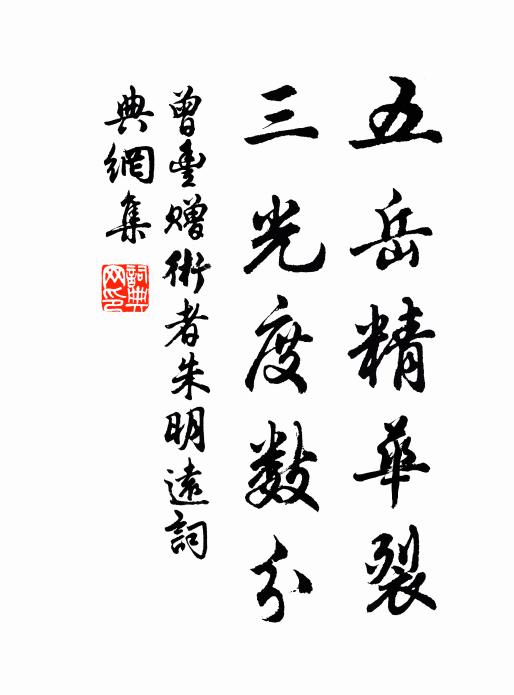 五岳精華裂
三光度數分
曾豐贈術者朱明遠詞
典網集
詞典網印